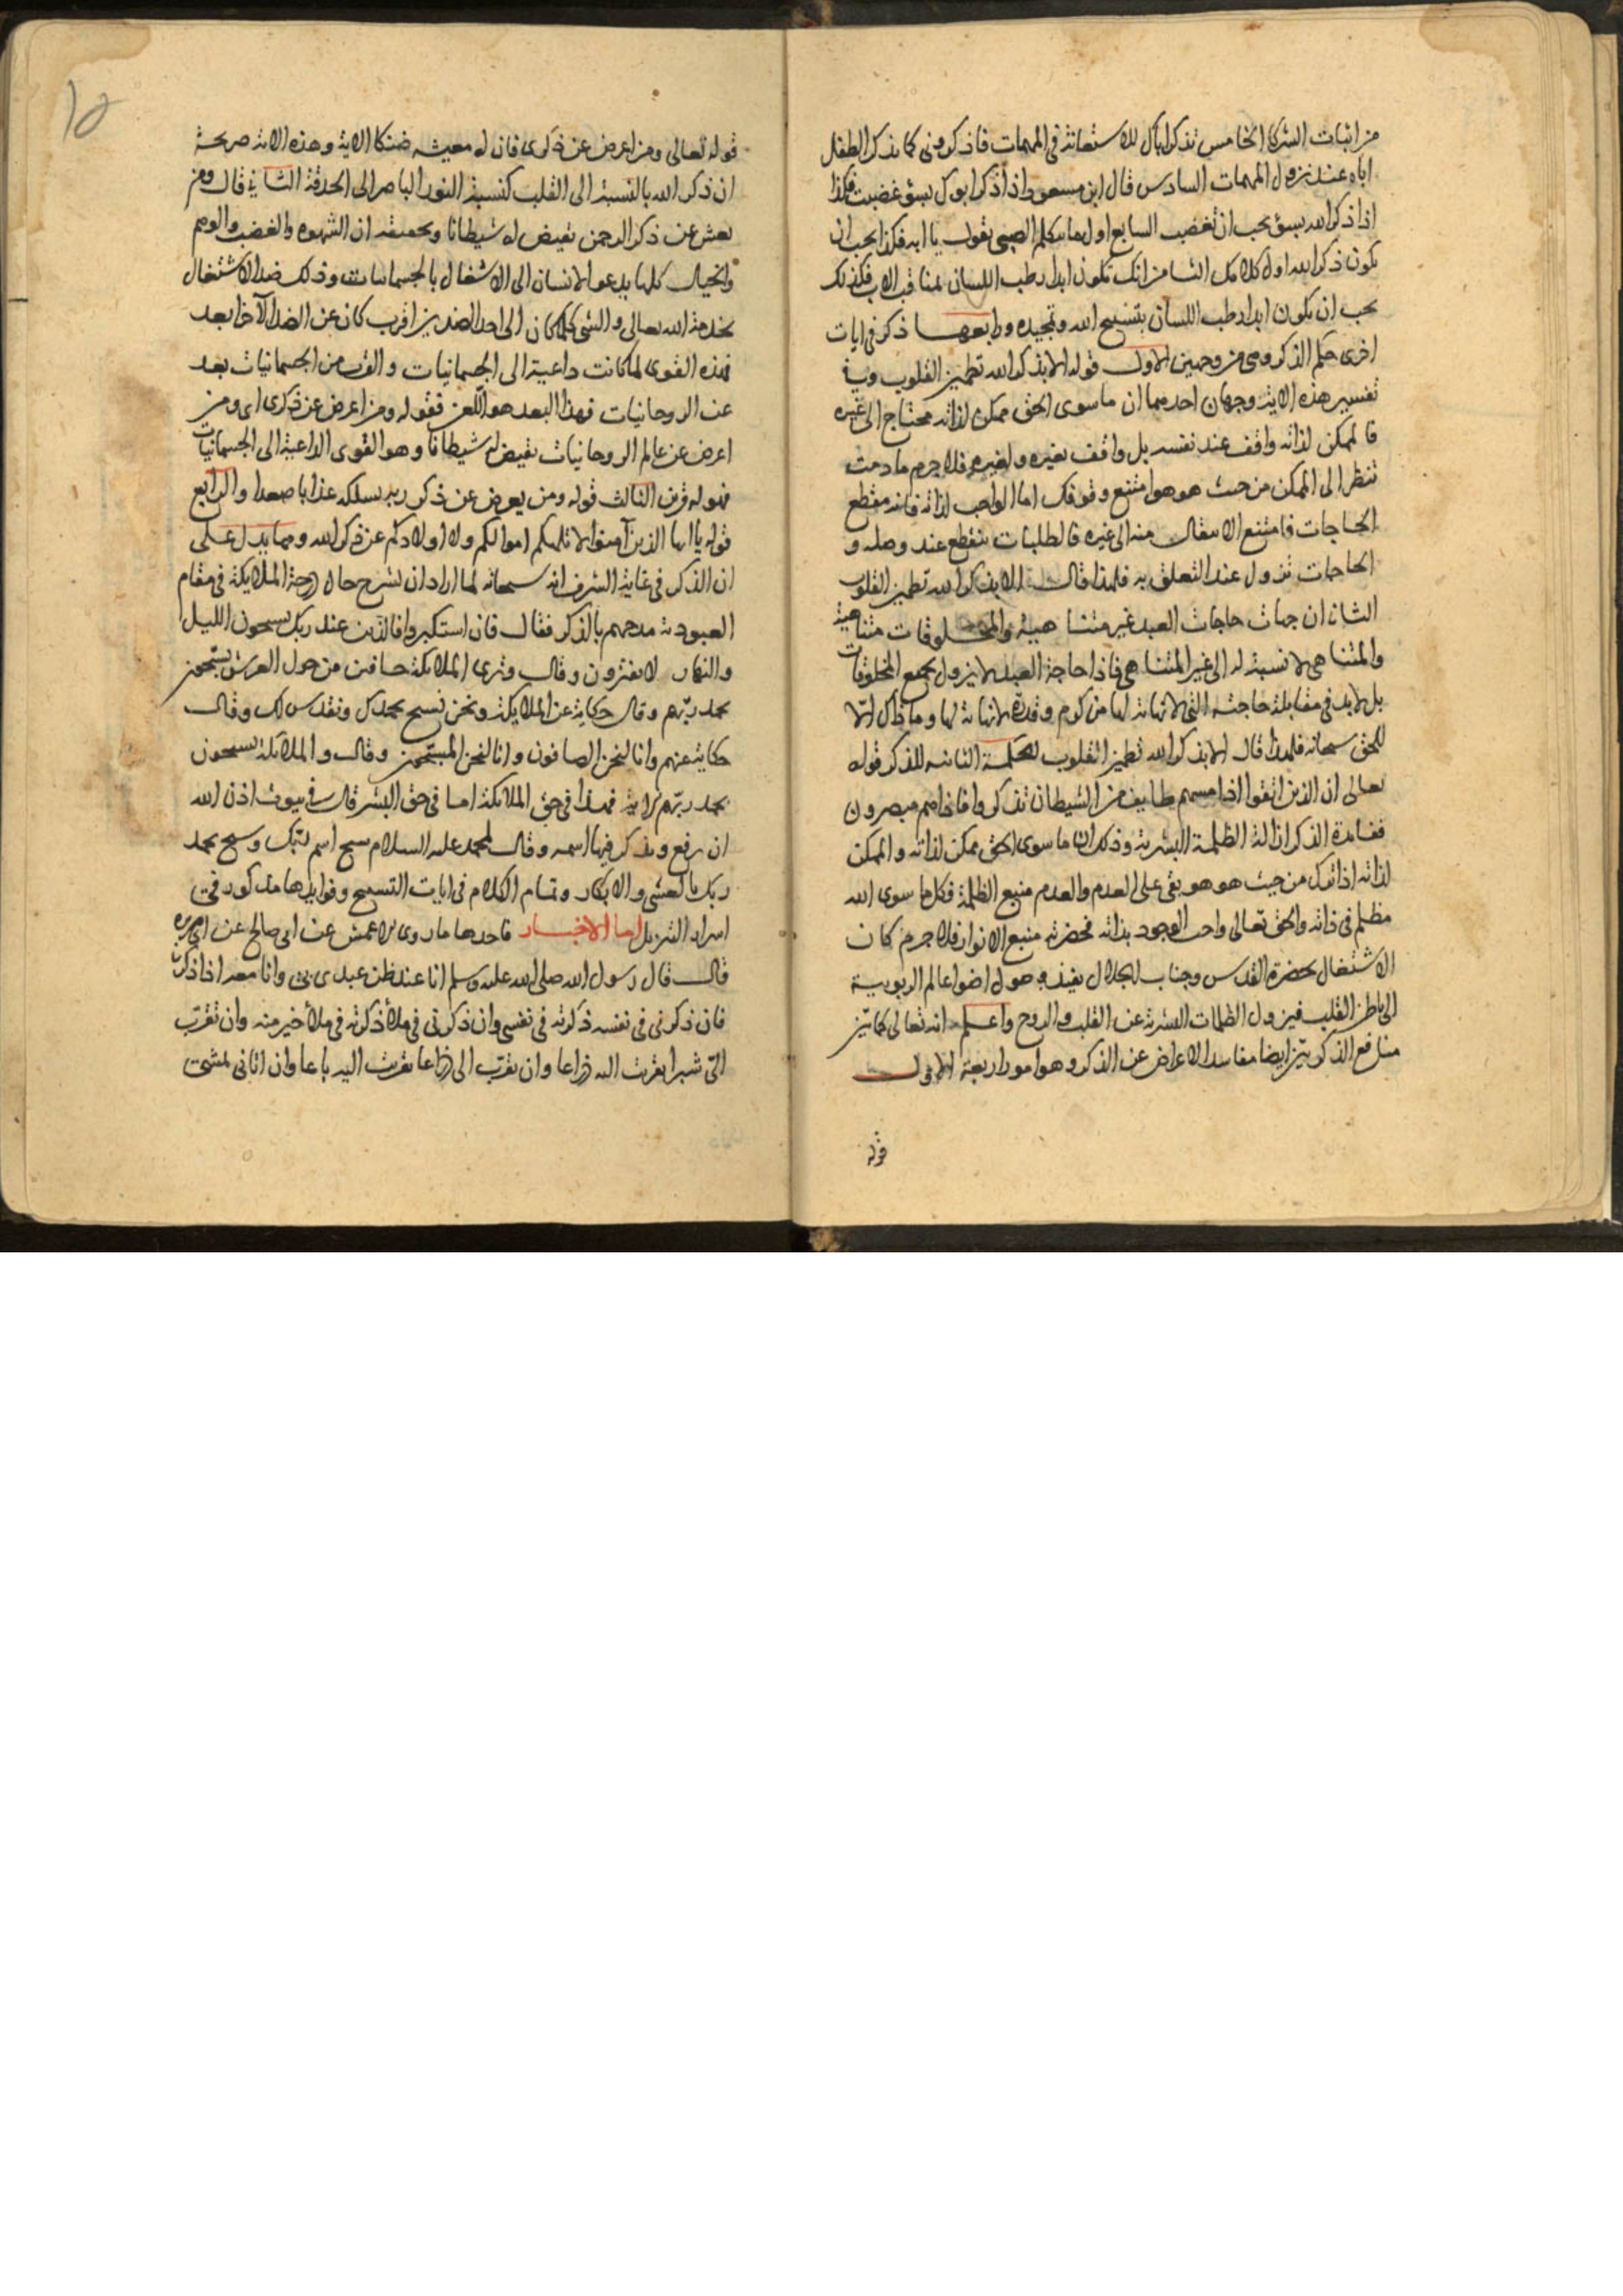 من اثبات الشركا الخامس تذكر اباك للاستعانة في المهمات فاذكروني كما يذكر الطفل
اباه عند نزول المهمات السادس قال ابن مسعود اذا ذكر ابوك بسؤ غضبت فكذا
اذا ذكر الله بسؤ يجب ان تغضب السابع اول ما يتكلم الصبي يقول يا ابه فكذا يجب ان
يكون ذكر الله اول كلامك الثامن انك تكون ابدا رطب اللسان بمناقب الاب فكذلك
يجب ان يكون ابدا رطب اللسان بتسبيح الله وتمجيده ورابعها ذكر في ايات
اخرى حكم الذكر وهي من وجهين الاول قوله الا بذكر الله تطمئن القلوب وفي
تفسير هذه الاية وجهان احدهما ان ما سوى الحق ممكن لذاته محتاج الى غيره
فالممكن لذاته واقف عند نفسه بل واقف بغيره ولغيره فلا جرم ما دمت
تنظر الى الممكن من حيث هو هو امتنع وقوفك اما الواجب لذاته فانه مقطع
الحاجات فامتنع الانتقال منه الى غيره فالطلبات تنقطع عند وصله و
الحاجات تزول عند التعلق به فلهذا قال الا بذكر الله تطمئن القلوب
الثاني ان جهات حاجات العبد غير متناهية والمخلوقات متناهية
والمتناهي لا نسبة له الى غير المتناهي فاذا حاجة العبد لا يزول بجميع المخلوقات
بل لا بد في مقابلة حاجته التي لا نهاية لها من كرم وقدرة لا نهاية لها وما ذاك الا
للحق سبحانه فلهذا قال الا بذكر الله تطمئن القلوب الحكمة الثانية للذكر قوله
تعالى ان الذين اتقوا اذا مسهم طايف من الشيطان تذكروا فاذا هم مبصرون
ففائدة الذكر ازالة الظلمة البشرية وذلك ان ما سوى الحق ممكن لذاته والممكن
لذاته اذا ترك من حيث هو هو بقي على العدم والعدم منبع الظلمة فكل ما سوى الله
مظلم في ذاته والحق تعالى واجب الوجود بذاته فحضرته منبع الانوار فلا جرم كان
الاشتغال بحضرة القدس وجناب الجلال يفيد وصول اضوا عالم الربوبية
الى باطن القلب فيزول الظلمات البشرية عن القلب والروح واعلم انه تعالى كما بين
منافع الذكر بين ايضا مفاسد الاعراض عن الذكر وهو امور اربعة الاول
قوله
قوله تعالى ومن اعرض عن ذكرى فان له معيشه ضنكا الاية وهذه الاية صريحة
ان ذكر الله بالنسبة الى القلب كنسبة النور الباصر الى الحدقة الثاني قال ومن
يعش عن ذكر الرحمن نقيض له شيطانا وتحقيقه ان الشهوه والغضب والوهم
والخيال كلها يدعو الانسان الى الاشتغال بالجسمانيات وذلك ضد الاشتغال
بخدمة الله تعالى والشي كلما كان الى احد الضدين اقرب كان عن الضد الآخر ابعد
فهذه القوى لما كانت داعية الى الجسمانيات والقرب من الجسمانيات بعد
عن الروحانيات فهذا البعد هو اللعن فقوله ومن اعرض عن ذكرى اى ومن
اعرض عن عالم الروحانيات نقيض له شيطانا وهو القوى الداعية الى الجسمانيات
فهو له قرين الثالث قوله ومن يعرض عن ذكر ربه يسلكه عذابا صعدا والرابع
قوله يا ايها الذين آمنوا لا تلهكم اموالكم ولا اولادكم عن ذكر الله ومما يدل على
ان الذكر في غاية الشرف انه سبحانه لما اراد ان يشرح حال درجة الملايكة في مقام
العبودية مدحهم بالذكر فقال فان استكبروا فالذين عند ربك يسبحون الليل
والنهار لا يفترون وقال وترى الملائكة حافين من حول العرش يسبحون
بحمد ربهم وقال حكاية عن الملايكة ونحن نسبح بحمدك ونقدس لك وقال
حكاية عنهم وانا لنحن الصافون وانا لنحن المسبحون وقال والملائكة يسبحون
بحمد ربهم الاية فهذا في حق الملائكة اما في حق البشر قال في بيوت اذن الله
ان ترفع ويذكر فيها اسمه وقال لمحمد عليه السلام سبح اسم ربك وسبح بحمد
ربك بالعشي والابكار وتمام الكلام في ايات التسبيح وفوايدها مذكور في
اسرار التنزيل اما الاخبار فاحدها ما روى الاعمش عن ابي صالح عن ابي هريره
قال قال رسول الله صلى الله عليه وسلم انا عند ظن عبدى بي وانا معه اذا ذكرني
فان ذكرني في نفسه ذكرته في نفسي وان ذكرني في ملأ ذكرته في ملأ خير منه وان تقرب
الي شبرا تقربت اليه ذراعا وان تقرب الى ذراعا تقربت اليه باعا وان اتاني يمشي